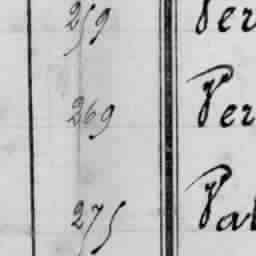 259 Per
269 Per
275 Pal